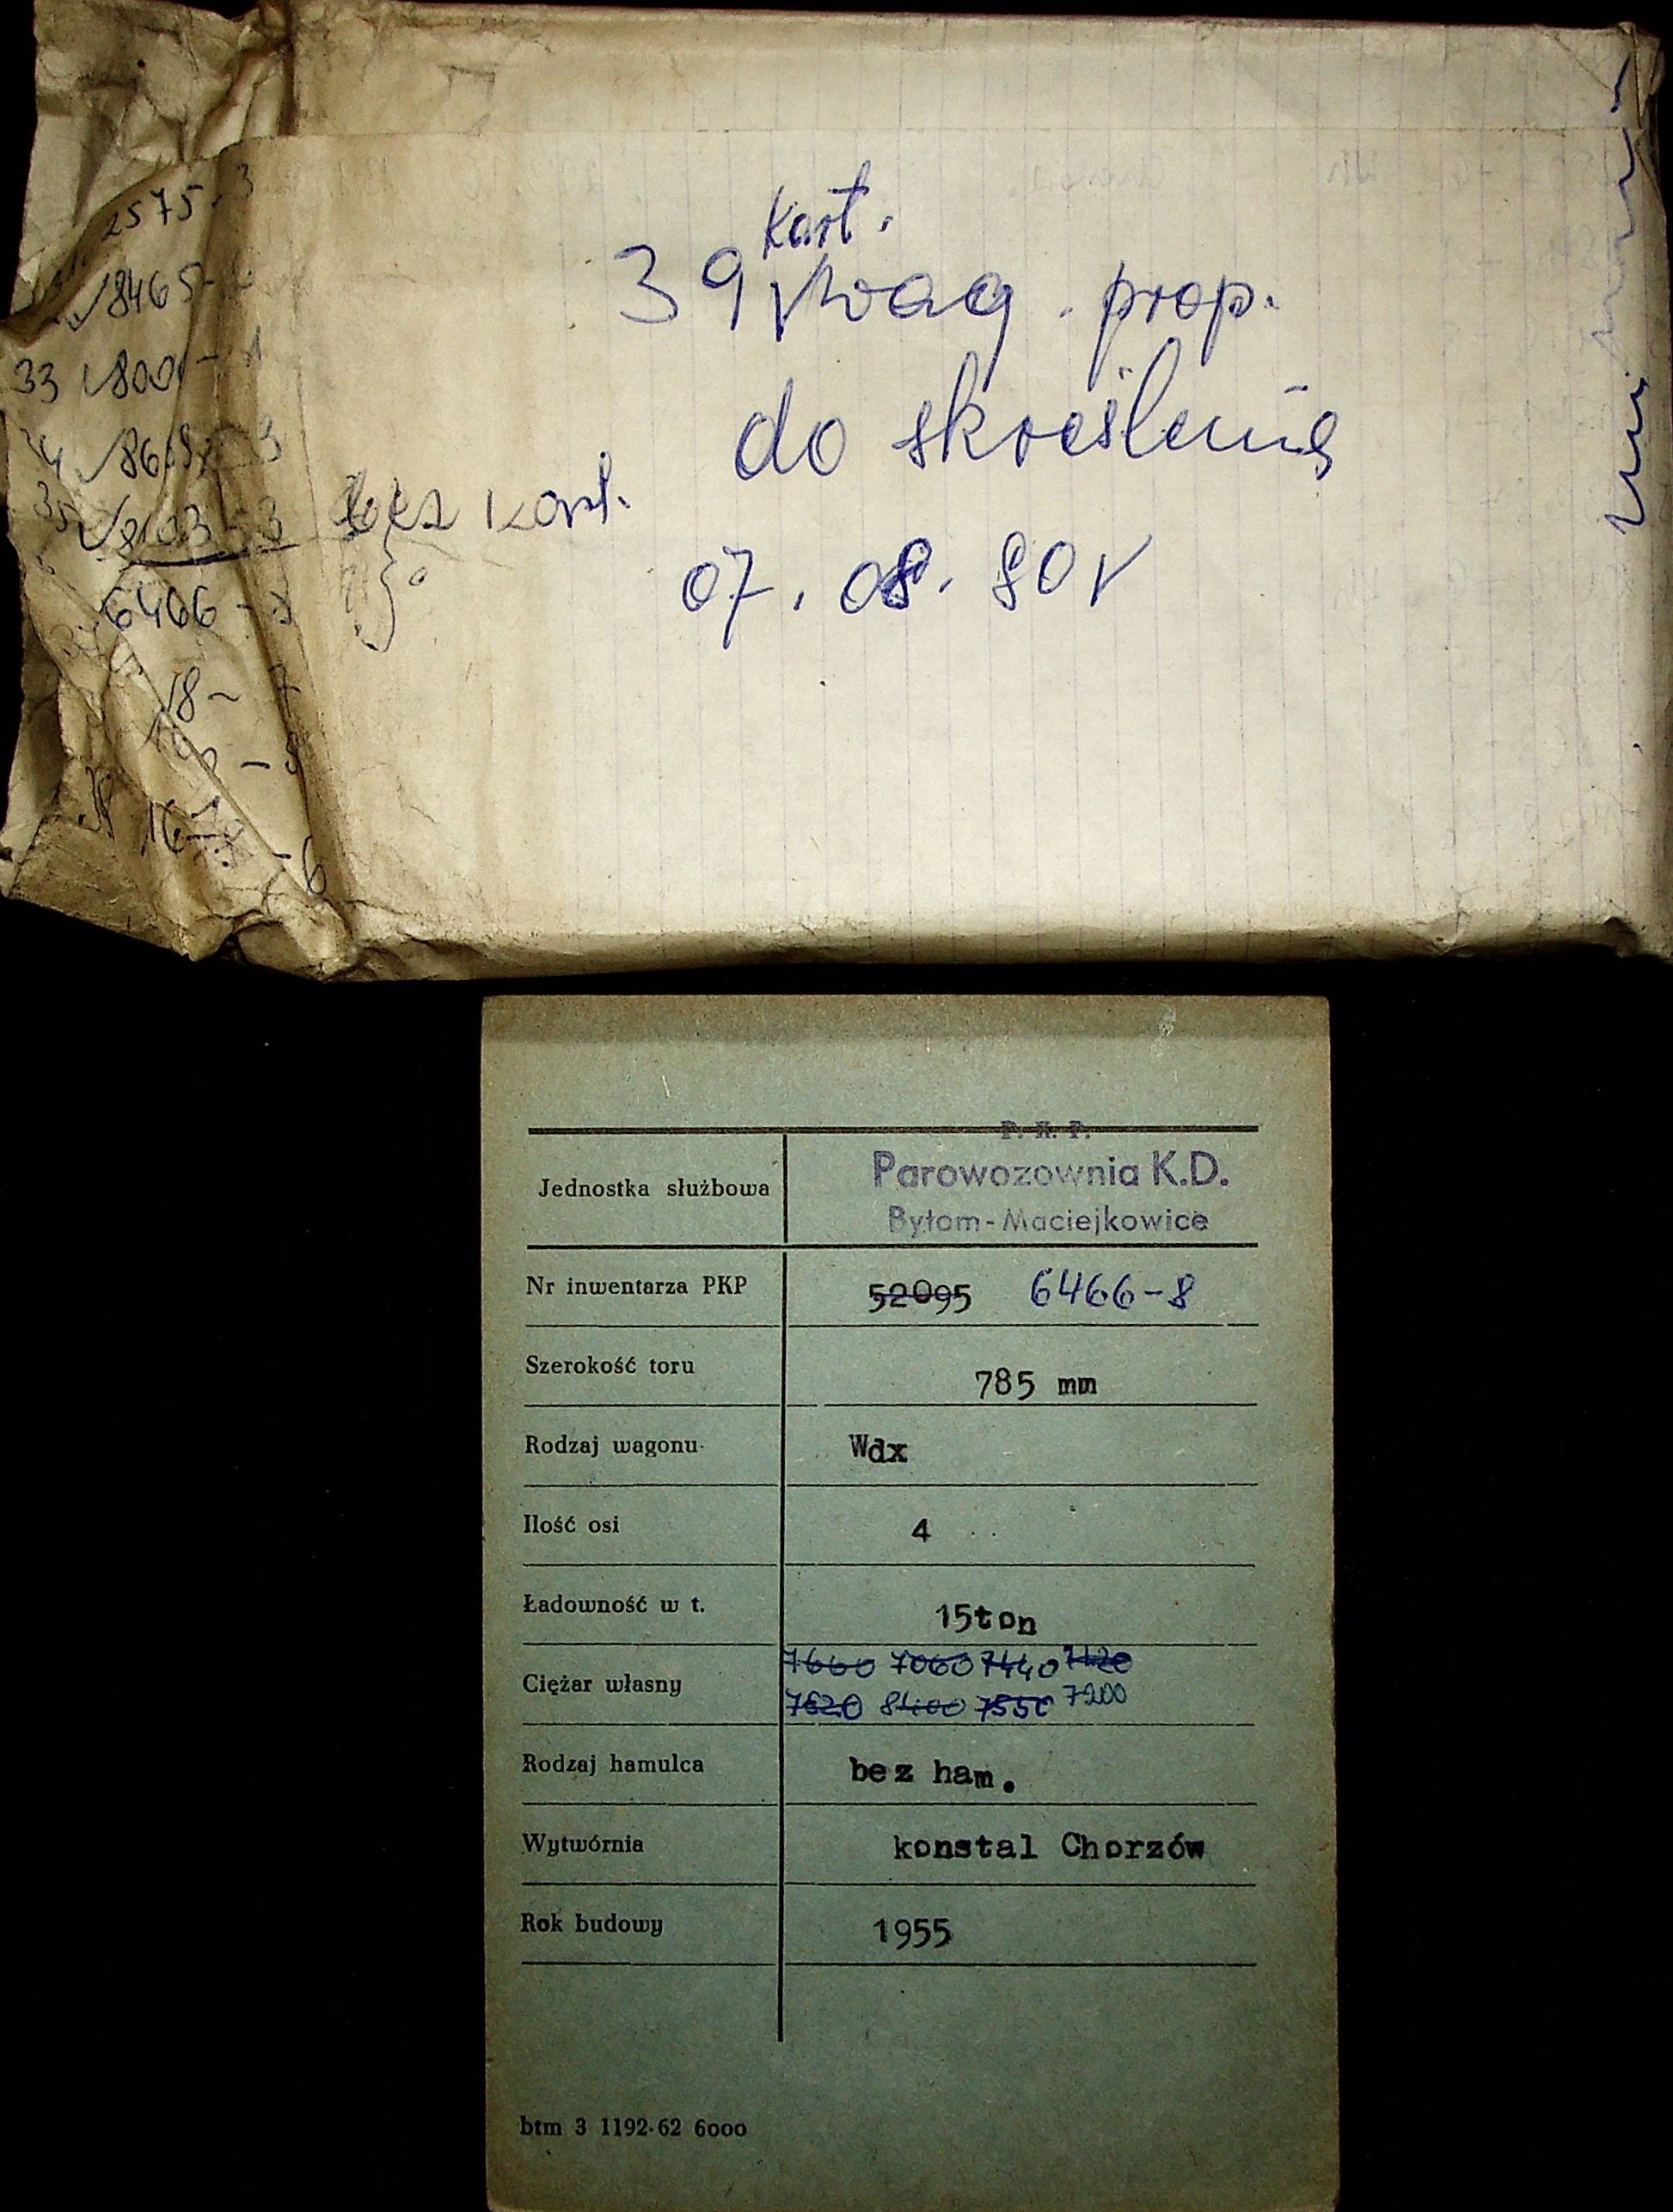 kart.
39 wag. prop.
do skreślenia
07.08.80r
2575-3
8465-
33 800 -
35
bez kart.
6466 -
18-
- 6
P.K.P.
Parowozownia K.D.
Bytom-Maciejkowice
Jednostka służbowa
Nr inwentarza PKP 52095 6466-8
Szerokość toru 785 mm
Rodzaj wagonu Wdx
Ilość osi 4
Ładowność w t. 15ton
Ciężar własny 7660 7060 7440 7420
7620 8400 7550 7200
Rodzaj hamulca bez ham.
Wytwórnia konstal Chorzów
Rok budowy 1955
btm 3 1192-62 6000